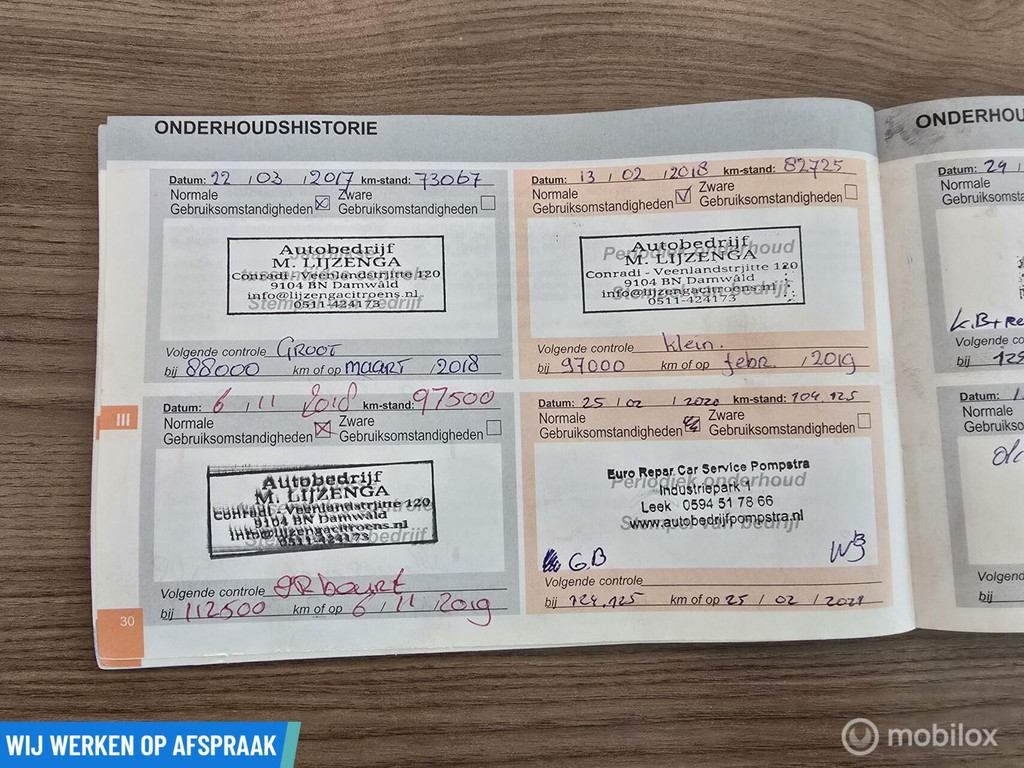 ONDERHOUDSHISTORIE
Datum: 22 / 03 / 2017 km-stand: 73067
Normale Gebruiksomstandigheden
Zware Gebruiksomstandigheden
Autobedrijf
M. LIJZENGA
Conradi - Veenlandstrjitte 120
9104 BN Damwâld
info@lijzengacitroens.nl
0511-424173
Stempel van bedrijf
Volgende controle GROOT
bij 88000 km of op maart / 2018
Datum: 13 / 02 / 2018 km-stand: 82725
Normale Gebruiksomstandigheden
Zware Gebruiksomstandigheden
Periodiek onderhoud
Autobedrijf
M. LIJZENGA
Conradi - Veenlandstrjitte 120
9104 BN Damwâld
info@lijzengacitroens.nl
0511-424173
Stempel van bedrijf
Volgende controle klein.
bij 97000 km of op febr. / 2019
Datum: 6 / 11 2018 km-stand: 97500
Normale Gebruiksomstandigheden
Zware Gebruiksomstandigheden
Autobedrijf
M. LIJZENGA
Conradi - Veenlandstrjitte 120
9104 BN Damwâld
info@lijzengacitroens.nl
0511-424173
Volgende controle beurt
bij 112500 km of op 6 / 11 / 2019
Datum: 25 / 02 / 2020 km-stand: 104.125
Normale Gebruiksomstandigheden
Zware Gebruiksomstandigheden
Euro Repar Car Service Pompstra
Periodiek onderhoud
Industriepark 1
Leek 0594 51 78 66
www.autobedrijfpompstra.nl
Stempel van bedrijf
G.B
Volgende controle
bij 124.125 km of op 25 / 02 / 2021
III
30
ONDERHOU
Datum: 29 /
Normale
Gebruiksomsta
Volgende co
bij 129
Datum:
Normale
Gebruiksomsta
Volgend
bij
WIJ WERKEN OP AFSPRAAK
mobilox